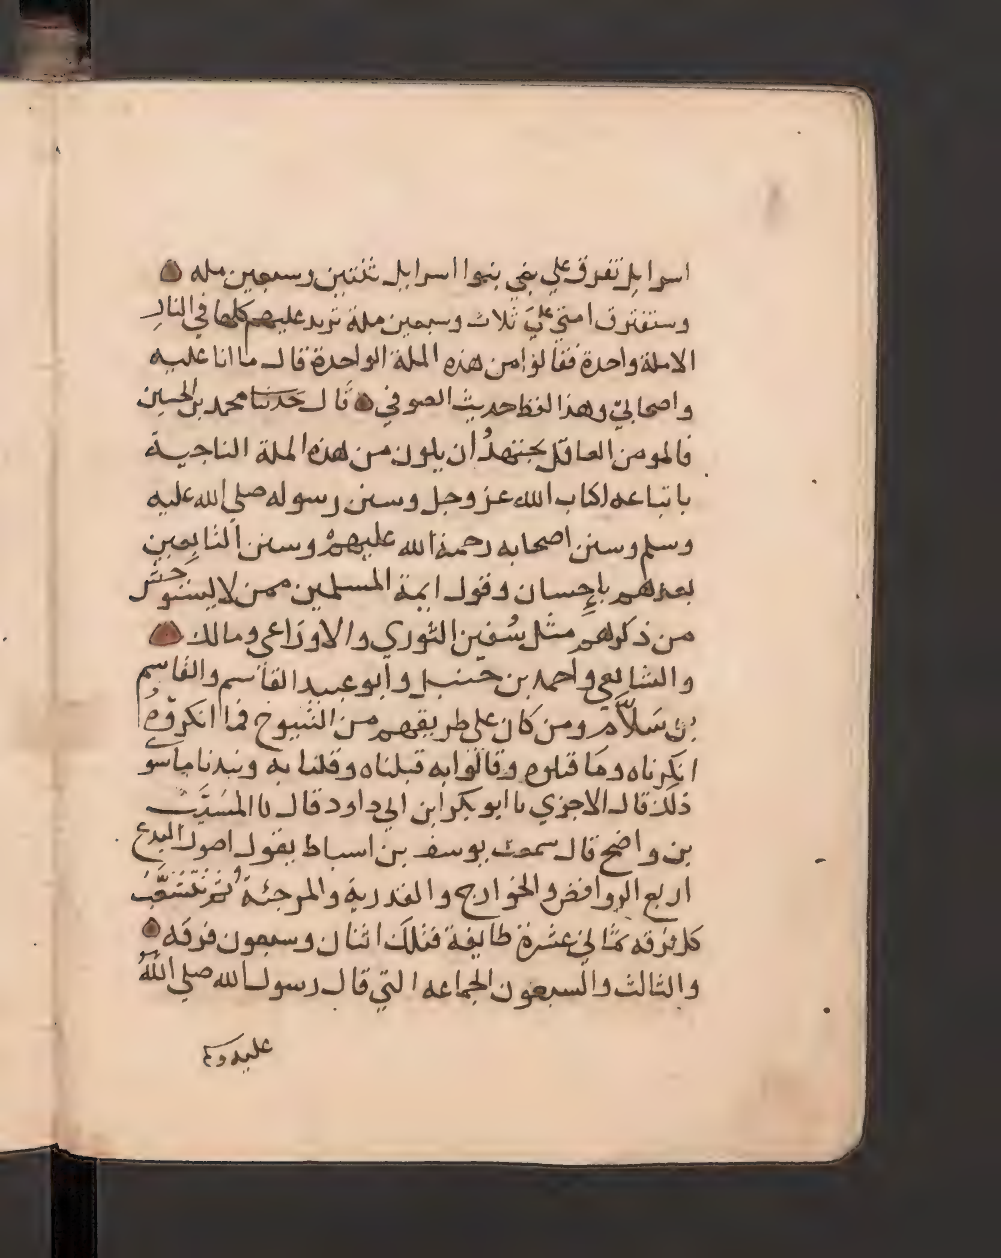 اسرايل تفرق علي بني بنوا اسرايل ثنتين وسبعين مله
وستفترق امتي علي ثلاث وسبعين ملة تزيد عليهم كلها في النار
الاملة واحدة فقالوا من هذه الملة الواحدة قال ما انا عليه
واصحابي وهذا لفظ حديث الصوفي قال حدثنا محمد بن الحسين
فالمومن العاقل يجتهد أن يكون من هذه الملة الناجية
باتباعه لكتاب الله عز وجل وسنن رسوله صلي الله عليه
وسلم وسنن اصحابه رحمة الله عليهم وسنن التابعين
بعدهم بإحسان وقول ايمة المسلمين ممن لا يستوحش
من ذكرهم مثل سفين الثوري والاوزاعي ومالك
والشافعي وأحمد بن حنبل وأبو عبيد القاسم والقاسم
بن سلام ومن كان علي طريقهم من الشيوخ فما انكروه
انكرناه وما قبلوه وقالوا به قبلناه وقلنا به ونبذنا ما سو
ذلك قال الاجري نا ابو بكر ابن ابي داود قال نا المسيب
بن واضح قال سمعت يوسف بن اسباط يقول اصول البدع
اربع الروافض والخوارج والقدرية والمرجئة ثم تتشعب
كل فرقه ثماني عشرة طايفة فتلك اثنان وسبعون فرقه
والثالث والسبعون الجماعه التي قال رسول الله صلي الله
عليه و